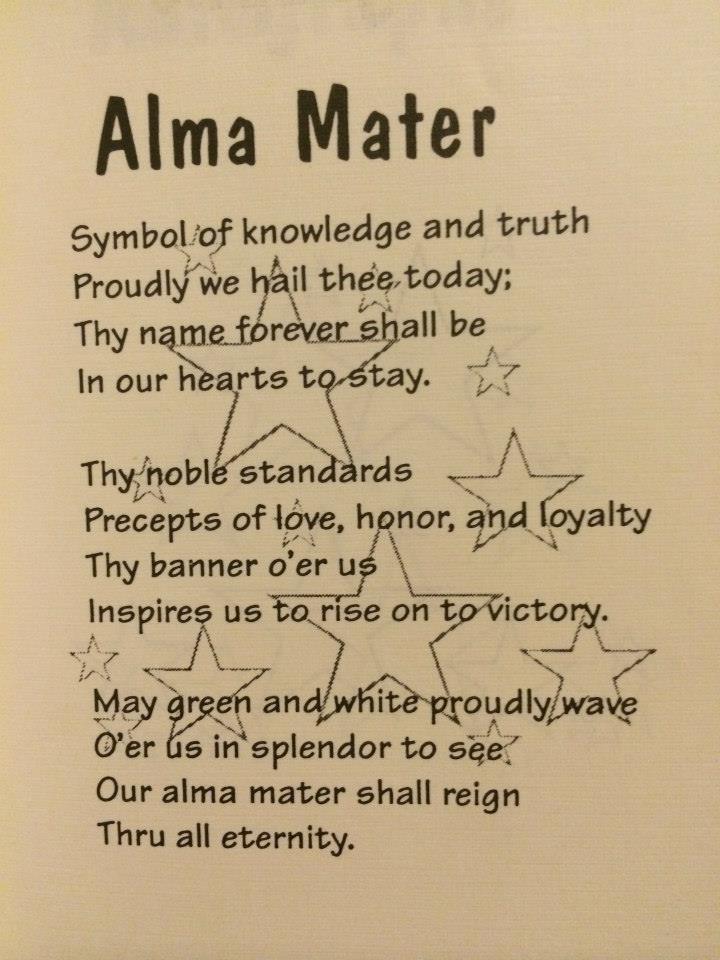 Alma Mater
Symbol of knowledge and truth
Proudly we hail thee today;
Thy name forever shall be
In our hearts to stay.
Thy noble standards
Precepts of love, honor, and loyalty
Thy banner o'er us
Inspires us to rise on to victory.
May green and white proudly wave
O'er us in splendor to see
Our alma mater shall reign
Thru all eternity.